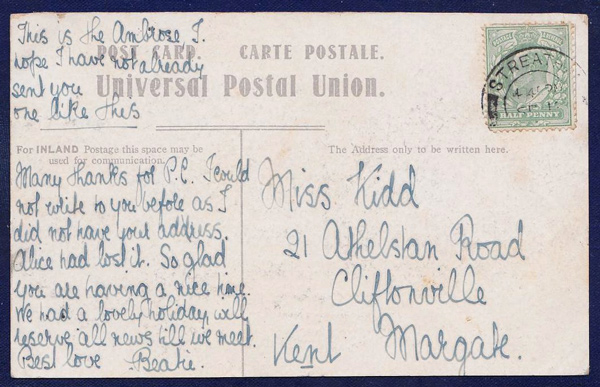 This is the Ambrose T.
hope I have not already
sent you
one like this
POST CARD. CARTE POSTALE.
Universal Postal Union.
STREATH
HALF PENNY
For INLAND Postage this space may be
used for communication.
The Address only to be written here.
Many thanks for P.C. I could
not write to you before as I
did not have your address.
Alice had lost it. So glad
you are having a nice time.
We had a lovely holiday, will
reserve all news till we meet.
Best love Beatie.
Miss Kidd
21 Athelstan Road
Cliftonville
Margate.
Kent